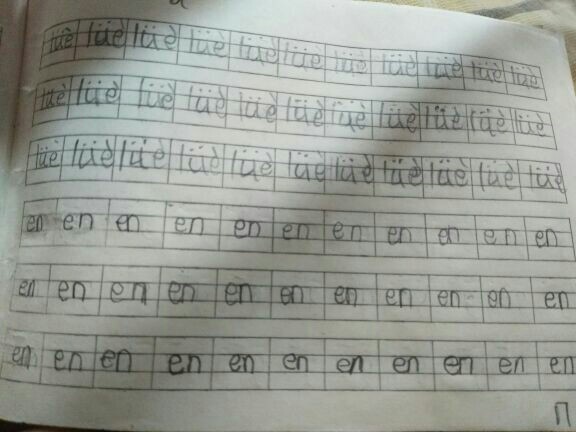 lüè lüè lüè lüè lüè lüè lüè lüè lüè lüè lüè
lüè lüè lüè lüè lüè lüè lüè lüè lüè lüè lüè
lüè lüè lüè lüè lüè lüè lüè lüè lüè lüè lüè
en en en en en en en en en en en
en en en en en en en en en en en
en en en en en en en en en en en